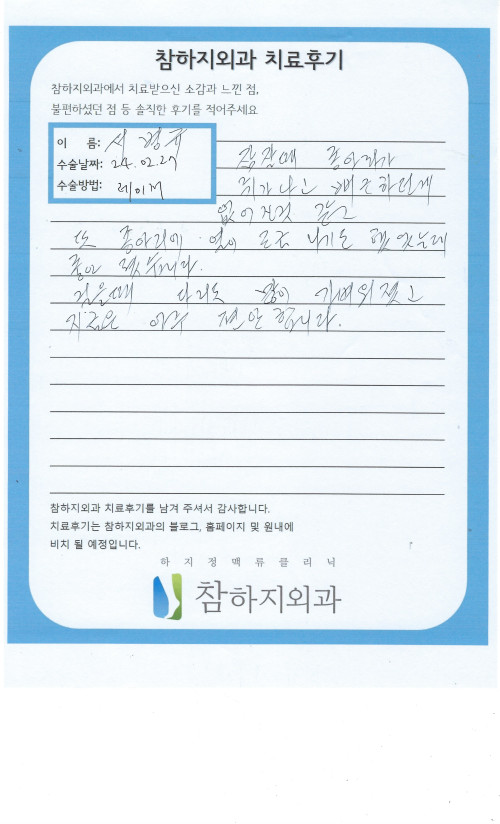 참하지외과 치료후기
참하지외과에서 치료받으신 소감과 느낀 점,
불편하셨던 점 등 솔직한 후기를 적어주세요
이 름: 서경
수술날짜: 24.02.27
수술방법: 레이저
잠잘때 종아리가
쥐가 나고
없어진것 같고
또 종아리에 나기도 했었는데
좋아 졌습니다.
걸을때 다리도 많이 가벼워졌고
지금은 아주 편안합니다.
참하지외과 치료후기를 남겨 주셔서 감사합니다.
치료후기는 참하지외과의 블로그, 홈페이지 및 원내에
비치 될 예정입니다.
하지정맥류클리닉
참하지외과